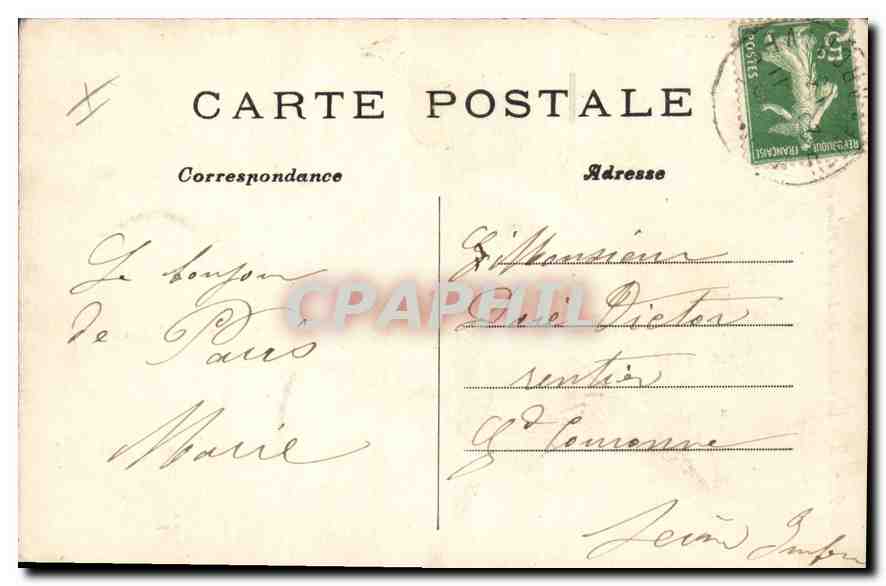 CARTE POSTALE
Correspondance
Adresse
Le bonjour
de Paris
Marie
Monsieur
Doré Victor
rentier
Gd Couronne
Seine Infre
CPAPHIL
5c
POSTES
REPUBLIQUE FRANÇAISE